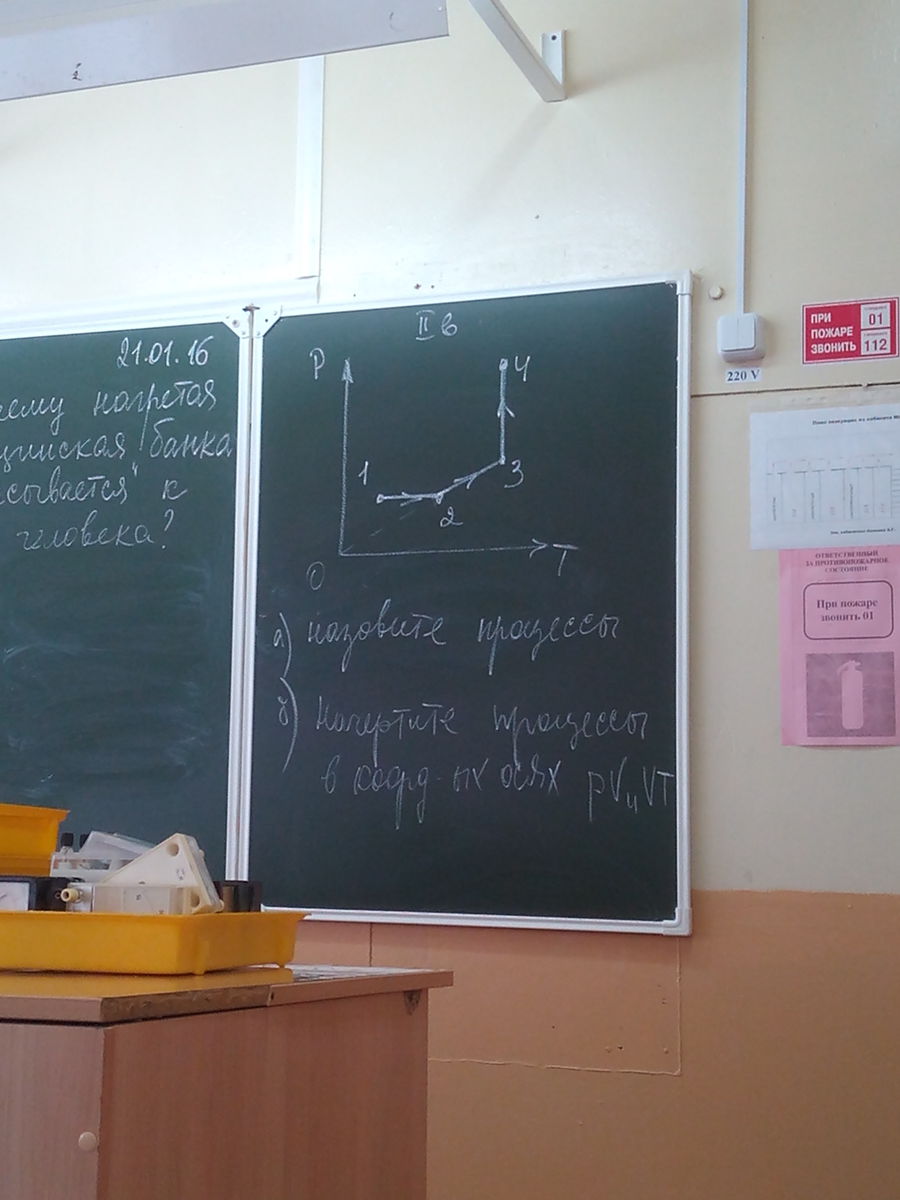 21.01.16
нагретая
банка
к
человека?
II в
P
4
1
3
2
0
T
а) назовите процессы
б) Начертите процессы
в коорд-ых осях pV и VT
220 V
ПРИ
ПОЖАРЕ
ЗВОНИТЬ
01
112
ОТВЕТСТВЕННЫЙ
ЗА ПРОТИВОПОЖАРНОЕ
СОСТОЯНИЕ
При пожаре
звонить 01